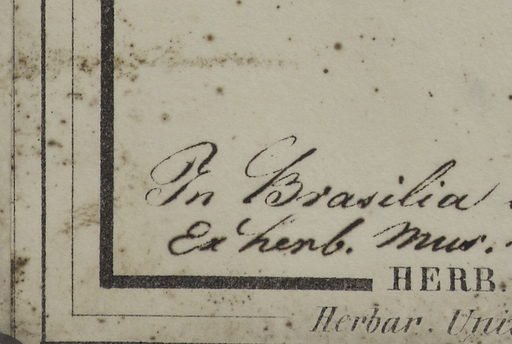 In Brasilia
Ex herb. Mus.
HERB.
Herbar.